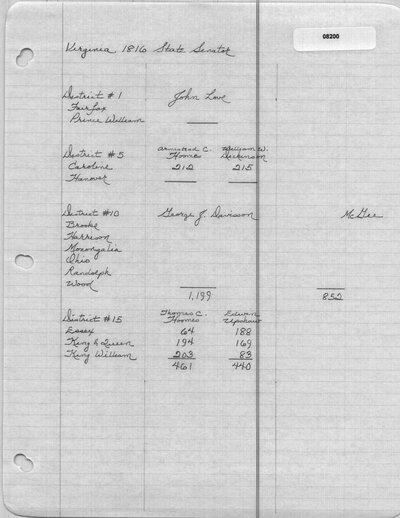 08200
Virginia 1816 State Senator
District #1 John Love
Fairfax
Prince William
District #5 Armistead C. Hoomes William W. Dickinson
Caroline 212 215
Hanover
District #10 George J. Davisson McGee
Brooke
Harrison
Monongalia
Ohio
Randolph
Wood
1,199 852
District #15 Thomas C. Hoomes Edwin Upshaw
Essex 64 188
King & Queen 194 169
King William 203 83
461 440